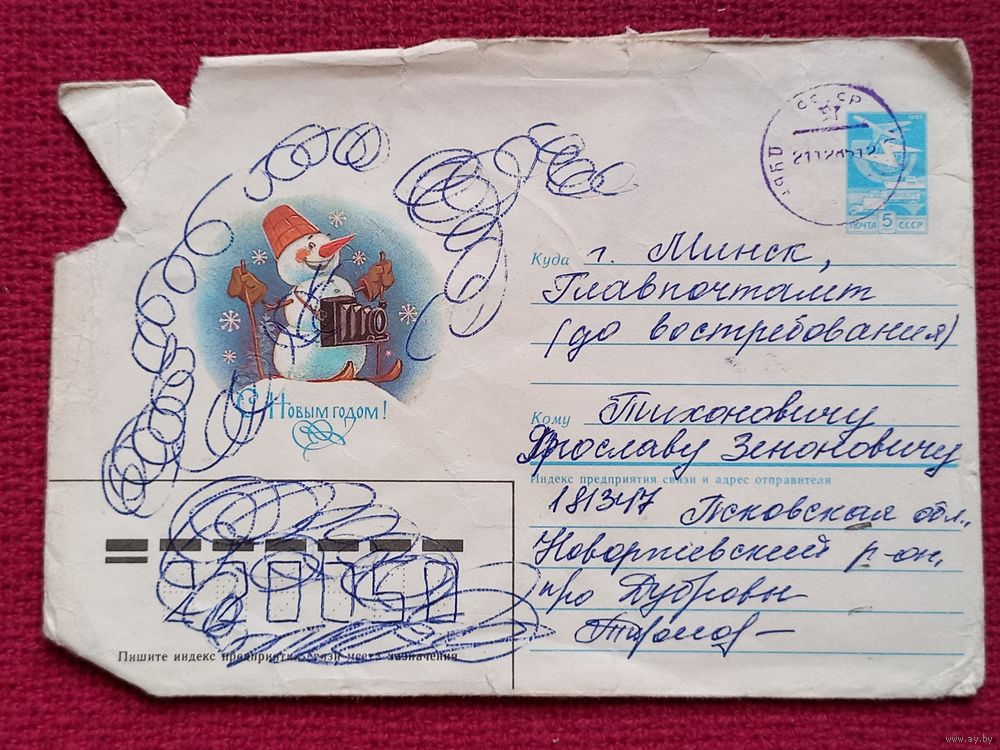 СССР
211285
ПОЧТА 5 СССР
Куда г. Минск,
Главпочтамт
(до востребования)
С Новым годом!
Кому Тихоновичу
Ярославу Зеноновичу
Индекс предприятия связи и адрес отправителя
181347 Псковская обл.,
Новоржевский р-он,
про Дубровы
Пишите индекс предприятия связи места назначения
www.ay.by